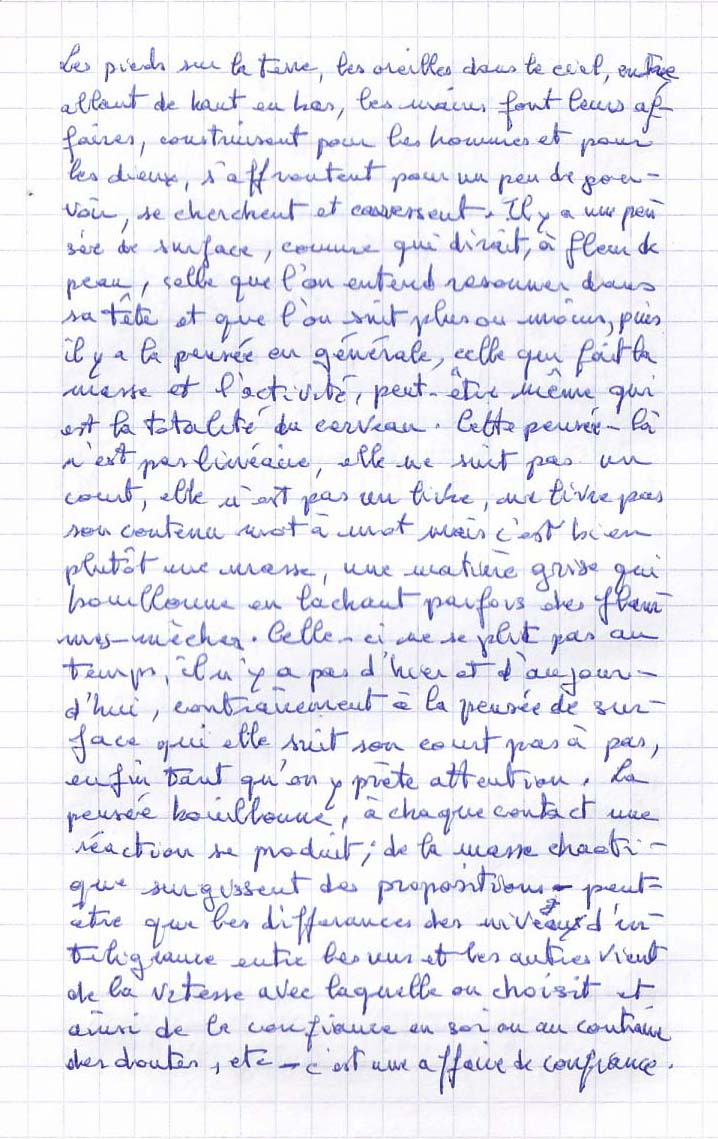 Les pieds sur la terre, les oreilles dans le ciel, entre
allant de haut en bas, les mains font leurs af-
faires, construisent pour les hommes et pour
les dieux, s'affrontent pour un peu de pou-
voir, se cherchent et caressent. Il y a une pen
sée de surface, comme qui dirait, à fleur de
peau, celle que l'on entend resonner dans
sa tête et que l'on suit plus ou moins, puis
il y a la pensée en générale, celle qui fait la
masse et l'activité, peut-être même qui
est la totalité du cerveau. Cette pensée-là
n'est pas linéaire, elle ne suit pas un
court, elle n'est pas un livre, ne livre pas
son contenu mot à mot mais c'est bien
plutôt une masse, une matière grise qui
bouillonne en lachant parfois des flam
mes-mèches. Celle-ci ne se plit pas au
temps, il n'y a pas d'hier et d'aujour-
d'hui, contrairement à la pensée de sur-
face qui elle suit son court pas à pas,
enfin tant qu'on y prête attention. La
pensée bouillonne, à chaque contact une
réaction se produit; de la masse chaoti-
que surgissent des propositions - peut-
être que les differances des niveaux d'in-
teligeance entre les uns et les autres vient
de la vitesse avec laquelle on choisit et
ainsi de la confiance en soi ou au contraire
des doutes, etc - c'est une affaire de confiance.